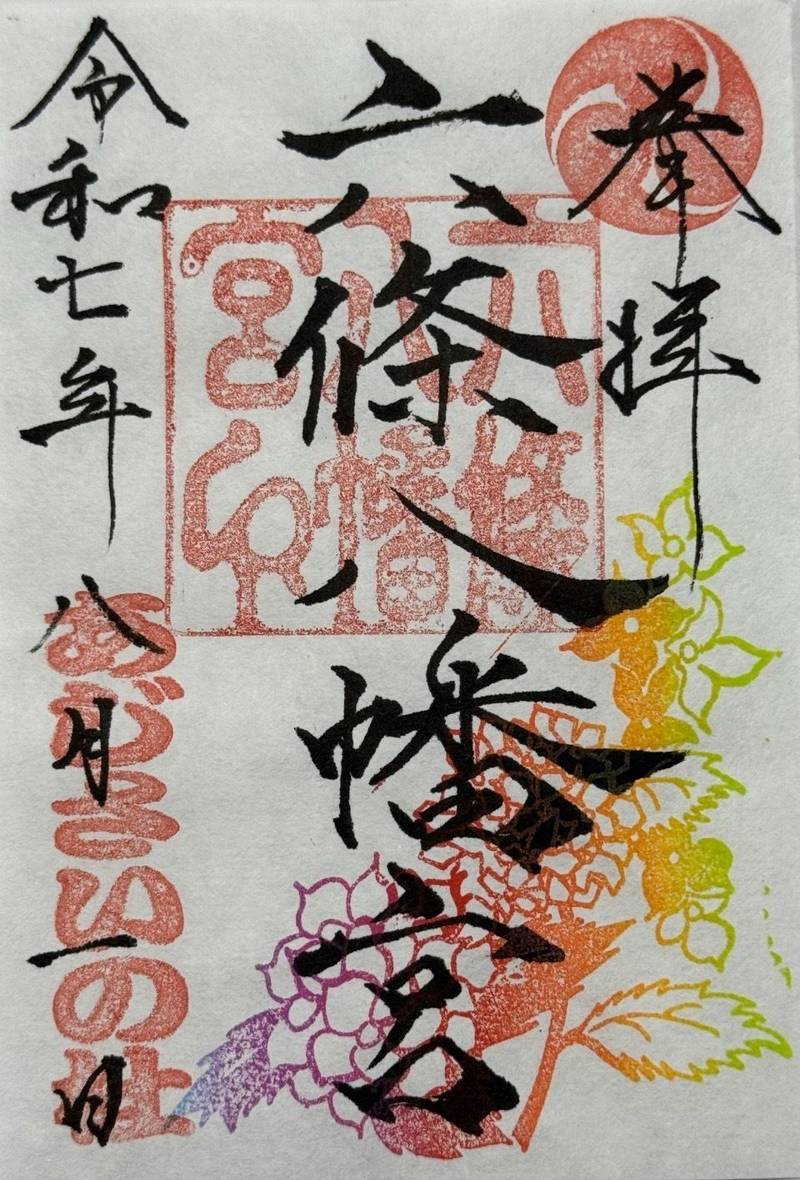 奉拝
六條八幡宮
六條
八幡
宮印
令和七年八月一日
あじさいの社